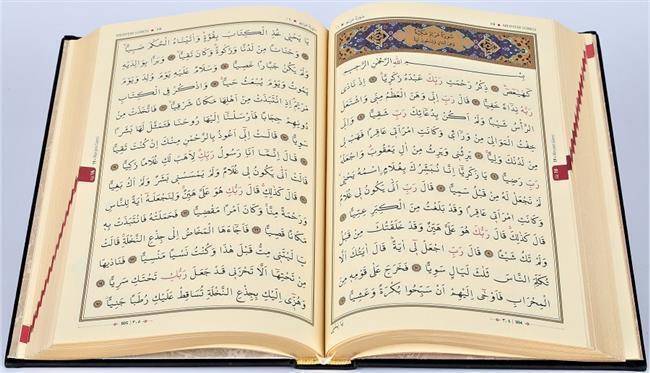 سُورَةُ مَرْيَمَ مَكِّيَّةٌ
بِسْمِ اللّٰهِ الرَّحْمٰنِ الرَّحِيمِ
كٓهٰيٰعٓصٓ ﴿١﴾ ذِكْرُ رَحْمَتِ رَبِّكَ عَبْدَهُ زَكَرِيَّا ﴿٢﴾ اِذْ نَادٰى
رَبَّهُ نِدَٓاءً خَفِيًّا ﴿٣﴾ قَالَ رَبِّ اِنِّي وَهَنَ الْعَظْمُ مِنِّي وَاشْتَعَلَ
الرَّأْسُ شَيْبًا وَلَمْ اَكُنْ بِدُعَٓائِكَ رَبِّ شَقِيًّا ﴿٤﴾ وَاِنِّي
خِفْتُ الْمَوَالِيَ مِنْ وَرَٓاءِي وَكَانَتِ امْرَاَتِي عَاقِرًا فَهَبْ لِي
مِنْ لَدُنْكَ وَلِيًّا ﴿٥﴾ يَرِثُنِي وَيَرِثُ مِنْ اٰلِ يَعْقُوبَ وَاجْعَلْهُ
رَبِّ رَضِيًّا ﴿٦﴾ يَا زَكَرِيَّٓا اِنَّا نُبَشِّرُكَ بِغُلَامٍ اسْمُهُ يَحْيٰى
لَمْ نَجْعَلْ لَهُ مِنْ قَبْلُ سَمِيًّا ﴿٧﴾ قَالَ رَبِّ اَنّٰى يَكُونُ لِي غُلَامٌ
وَكَانَتِ امْرَاَتِي عَاقِرًا وَقَدْ بَلَغْتُ مِنَ الْكِبَرِ عِتِيًّا ﴿٨﴾
قَالَ كَذٰلِكَ قَالَ رَبُّكَ هُوَ عَلَيَّ هَيِّنٌ وَقَدْ خَلَقْتُكَ مِنْ قَبْلُ
وَلَمْ تَكُ شَيْـًٔا ﴿٩﴾ قَالَ رَبِّ اجْعَلْ لِٓي اٰيَةً قَالَ اٰيَتُكَ اَلَّا
تُكَلِّمَ النَّاسَ ثَلٰثَ لَيَالٍ سَوِيًّا ﴿١٠﴾ فَخَرَجَ عَلٰى قَوْمِهِ مِنَ
الْمِحْرَابِ فَاَوْحٰٓى اِلَيْهِمْ اَنْ سَبِّحُوا بُكْرَةً وَعَشِيًّا ﴿١١﴾
304 ٣٠٤
يَا يَحْيٰى خُذِ الْكِتَابَ بِقُوَّةٍ وَاٰتَيْنَاهُ الْحُكْمَ صَبِيًّا ﴿١٢﴾
وَحَنَانًا مِنْ لَدُنَّا وَزَكٰوةً وَكَانَ تَقِيًّا ﴿١٣﴾ وَبَرًّا بِوَالِدَيْهِ
وَلَمْ يَكُنْ جَبَّارًا عَصِيًّا ﴿١٤﴾ وَسَلَامٌ عَلَيْهِ يَوْمَ وُلِدَ وَيَوْمَ
يَمُوتُ وَيَوْمَ يُبْعَثُ حَيًّا ﴿١٥﴾ وَاذْكُرْ فِي الْكِتَابِ
مَرْيَمَ اِذِ انْتَبَذَتْ مِنْ اَهْلِهَا مَكَانًا شَرْقِيًّا ﴿١٦﴾ فَاتَّخَذَتْ مِنْ
دُونِهِمْ حِجَابًا فَاَرْسَلْنَٓا اِلَيْهَا رُوحَنَا فَتَمَثَّلَ لَهَا بَشَرًا
سَوِيًّا ﴿١٧﴾ قَالَتْ اِنِّٓي اَعُوذُ بِالرَّحْمٰنِ مِنْكَ اِنْ كُنْتَ تَقِيًّا ﴿١٨﴾
قَالَ اِنَّمَٓا اَنَا رَسُولُ رَبِّكِ لِاَهَبَ لَكِ غُلَامًا زَكِيًّا ﴿١٩﴾
قَالَتْ اَنّٰى يَكُونُ لِي غُلَامٌ وَلَمْ يَمْسَسْنِي بَشَرٌ وَلَمْ اَكُ بَغِيًّا ﴿٢٠﴾
قَالَ كَذٰلِكِ قَالَ رَبُّكِ هُوَ عَلَيَّ هَيِّنٌ وَلِنَجْعَلَهُٓ اٰيَةً لِلنَّاسِ
وَرَحْمَةً مِنَّا وَكَانَ اَمْرًا مَقْضِيًّا ﴿٢١﴾ فَحَمَلَتْهُ فَانْتَبَذَتْ بِهِ
مَكَانًا قَصِيًّا ﴿٢٢﴾ فَاَجَٓاءَهَا الْمَخَاضُ اِلٰى جِذْعِ النَّخْلَةِ قَالَتْ
يَا لَيْتَنِي مِتُّ قَبْلَ هٰذَا وَكُنْتُ نَسْيًا مَنْسِيًّا ﴿٢٣﴾ فَنَادٰيهَا
مِنْ تَحْتِهَٓا اَلَّا تَحْزَنِي قَدْ جَعَلَ رَبُّكِ تَحْتَكِ سَرِيًّا ﴿٢٤﴾
وَهُزِّٓي اِلَيْكِ بِجِذْعِ النَّخْلَةِ تُسَاقِطْ عَلَيْكِ رُطَبًا جَنِيًّا ﴿٢٥﴾
305 ٣٠٥